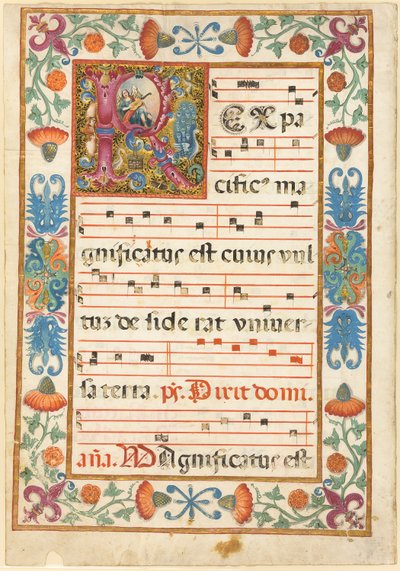 REX pa
cific⁹ ma
gnificatus est cuius vul
tuz de side rat vniuer
sa terra. ps. Dixit domi.
aña. Magnificatus est